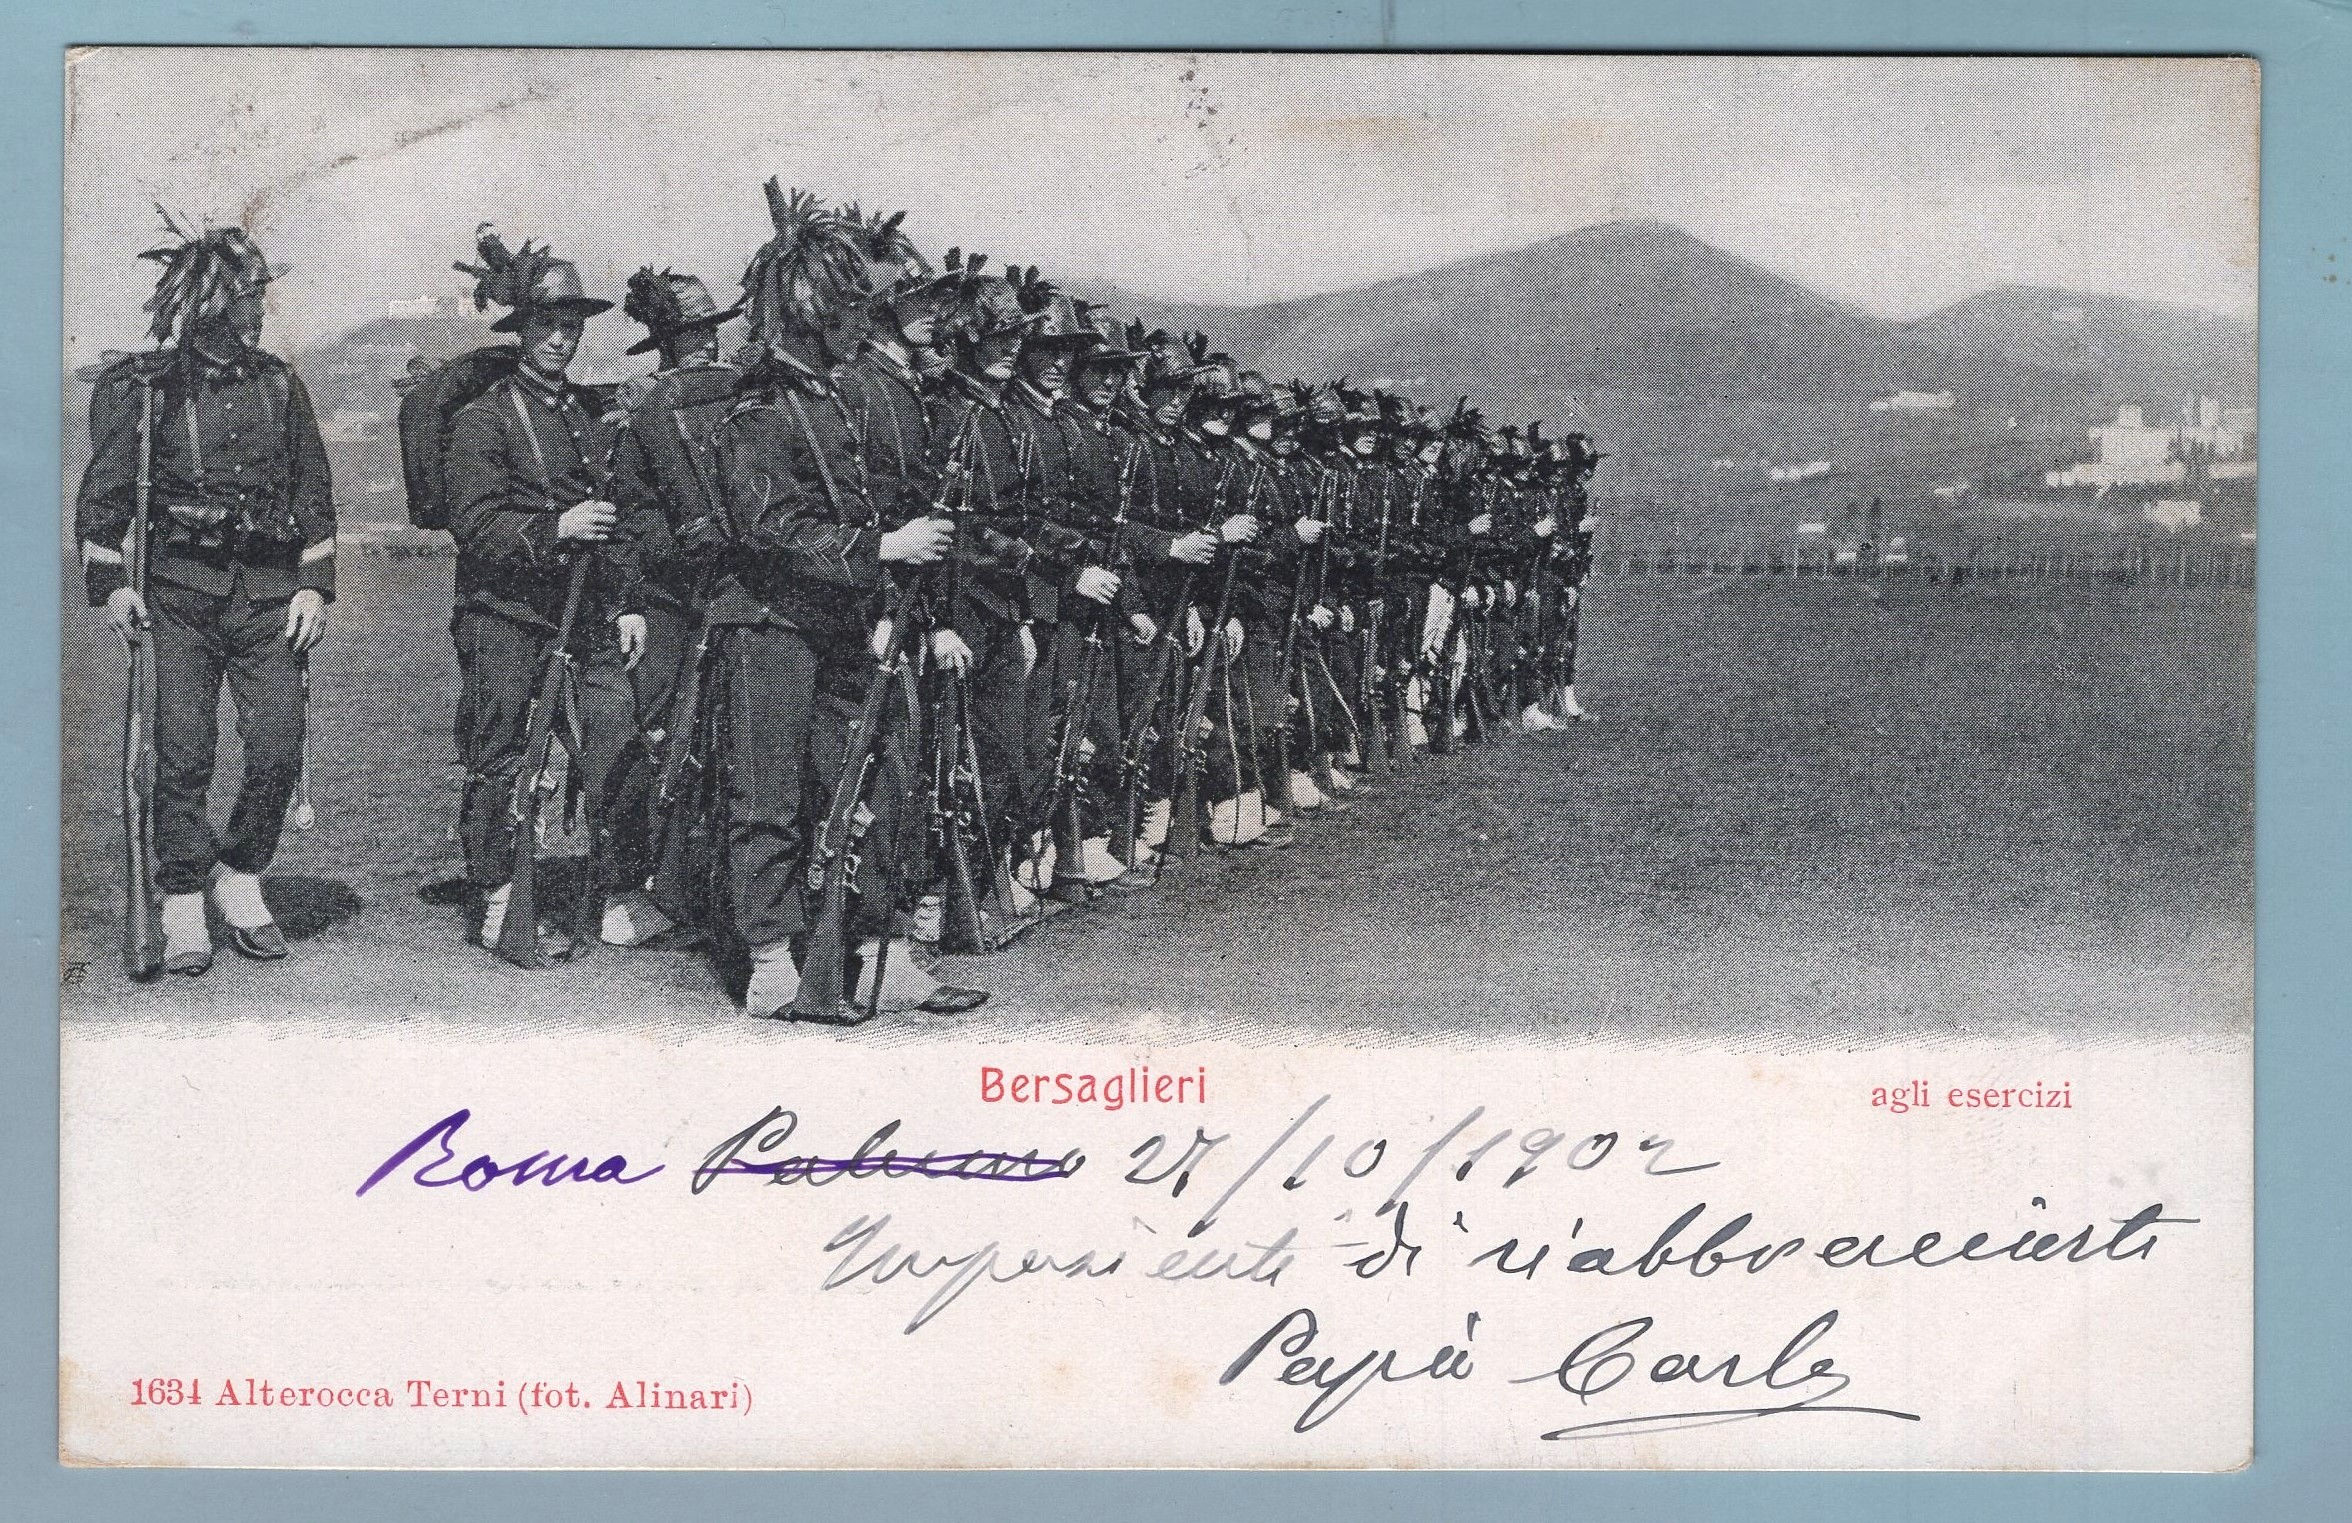 Bersaglieri
agli esercizi
Roma Palermo 27/10/1902
Impaziente di riabbracciarti
Papà Carlo
1634 Alterocca Terni (fot. Alinari)